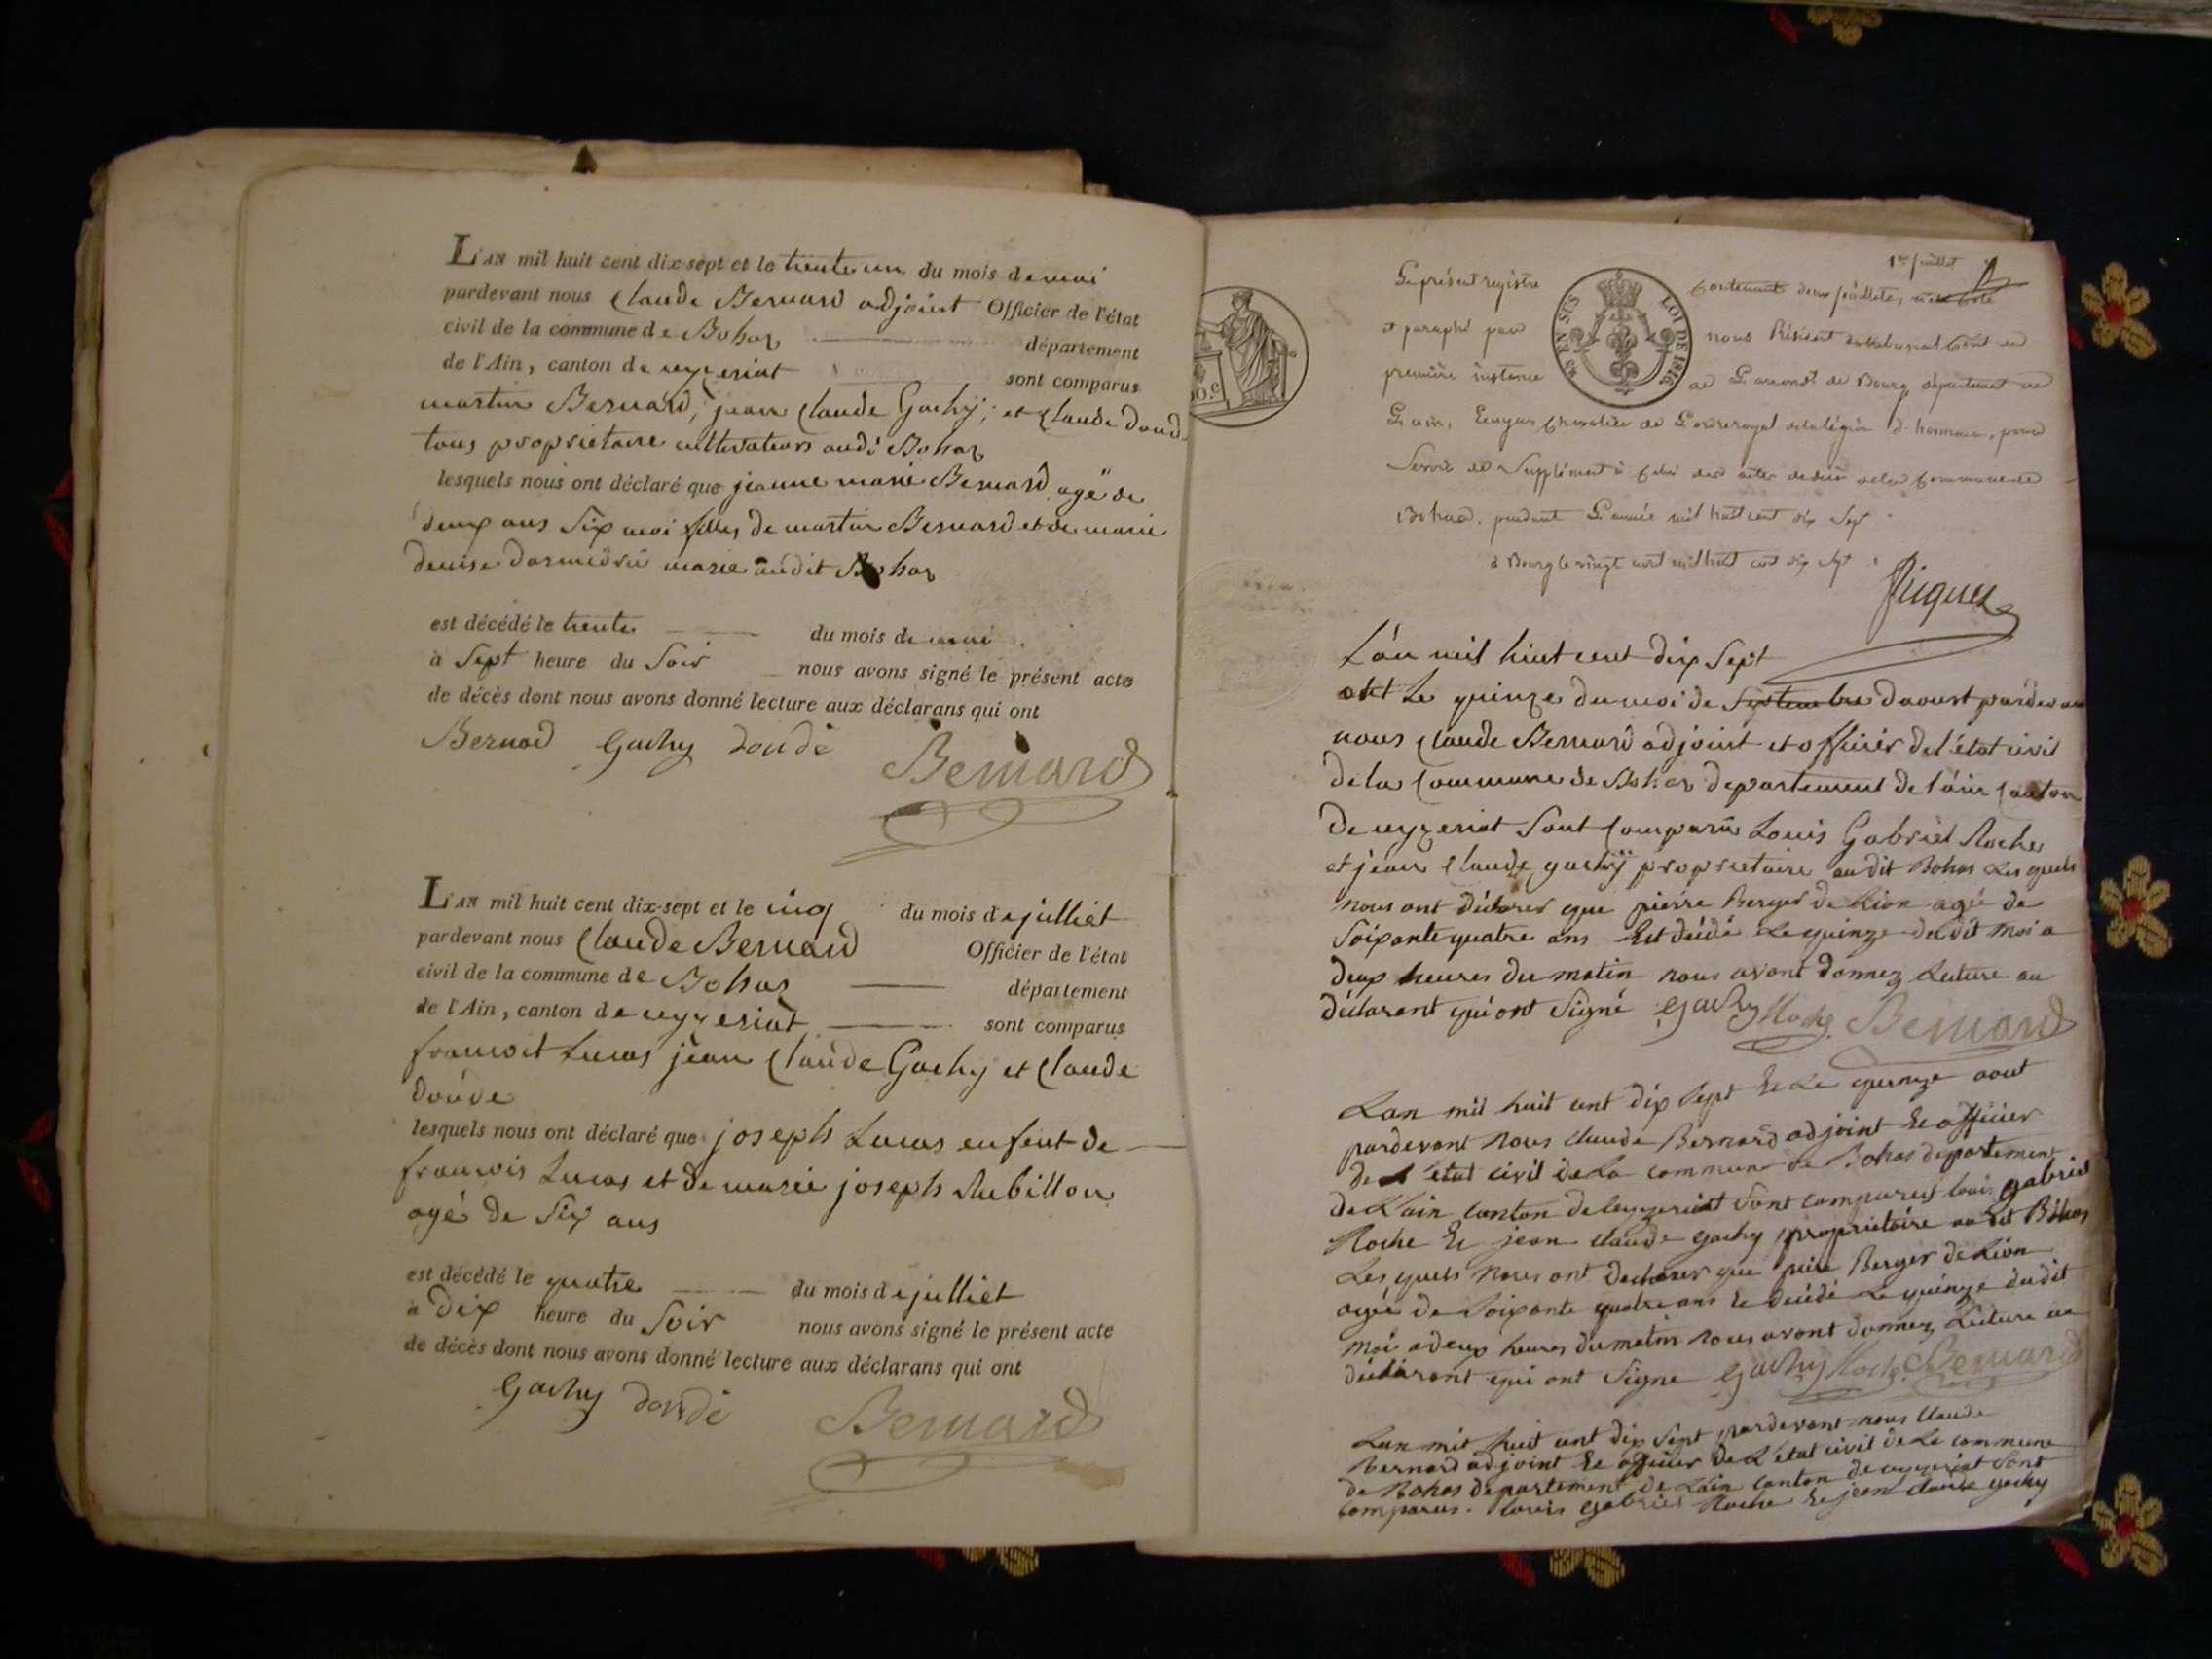 L'AN mil huit cent dix-sept et le trente un du mois de mai
pardevant nous Claude Bernard adjoint Officier de l'état
civil de la commune de Bohas département
de l'Ain, canton de ceyzeriat sont comparus
martin Bernard, jean Claude Gachÿ, et Claude Doud
tous proprietaire cultivateurs audi Bohas
lesquels nous ont déclaré que jeanne marie Bernard agé de
deux ans Six moi filles de martin Bernard et de marie
denise marie audit Bohas
est décédé le trente du mois de mai
à Sept heure du Soir nous avons signé le présent acte
de décès dont nous avons donné lecture aux déclarans qui ont
Bernard Gachy Doudé Bernard
L'AN mil huit cent dix-sept et le cinq du mois de julliet
pardevant nous Claude Bernard Officier de l'état
civil de la commune de Bohas département
de l'Ain, canton de ceyzeriat sont comparus
francoit Lucas jean Claude Gachy et Claude
doude
lesquels nous ont déclaré que joseph Lucas enfent de
francois Lucas et de marie joseph Rubillon
agé de Six ans
est décédé le quatre du mois de julliet
à Dix heure du Soir nous avons signé le présent acte
de décès dont nous avons donné lecture aux déclarans qui ont
Gachy Doudé Bernard
1er feuillet
Le présent registre contenant deux feuillets, a été coté
et paraphé par nous Président du tribunal Civil de
première instance de L'arrondt. de Bourg, département de
L'ain, Ecuyer Chevalier de L'ordre royal de la légion d'honneur, pour
Servir de Supplément à celui des actes de décès de la Commune de
Bohas, pendant L'année mil huit cent dix Sept
à Bourg le vingt août mil huit cent dix sept
EN SUS LOI DE 1816
L'an mil huit cent dix Sept
et Le quinze du moi de Septembre daoust pardevan
nous Claude Bernard adjoint et officier de l'état civil
de la Commune de Bohas departement de l'ain Canton
de ceyzeriat Sont Comparu Louis Gabriel Roche
et jean Claude gachÿ proprietaire audit Bohas Les quels
nous ont déclarer que pierre Berger de Lion agé de
Soixante quatre ans Est décédé Le quinze du dit moi a
deux heures du matin nous avont donnez Lecture au
déclarant qui ont Signé Gachy Roche Bernard
Lan mil huit cent dix Sept Et Le quinze aout
pardevant nous Claude Bernard adjoint Et officier
de l'etat civil de La commune de Bohas departement
de L'ain canton de Ceyzeriat Sont comparus loui gabriel
Roche Et jean claude gachy proprietaire au dit Bohas
Les quels nous ont declarer que piere Berger de Lion
agée de Soixante quatre ans Et décédé Le quinze du dit
moi a deux heures du matin nous avont donnez Lecture au
déclarant qui ont Signe Gachy Roche Bernard
Lan mil huit cent dix Sept pardevant nous Claude
Bernard adjoint Et officier de L'etat civil de La commune
de Bohas departement de Lain canton de ceyzeriat Sont
comparus. louis gabriel Roche Et jean claude gachy